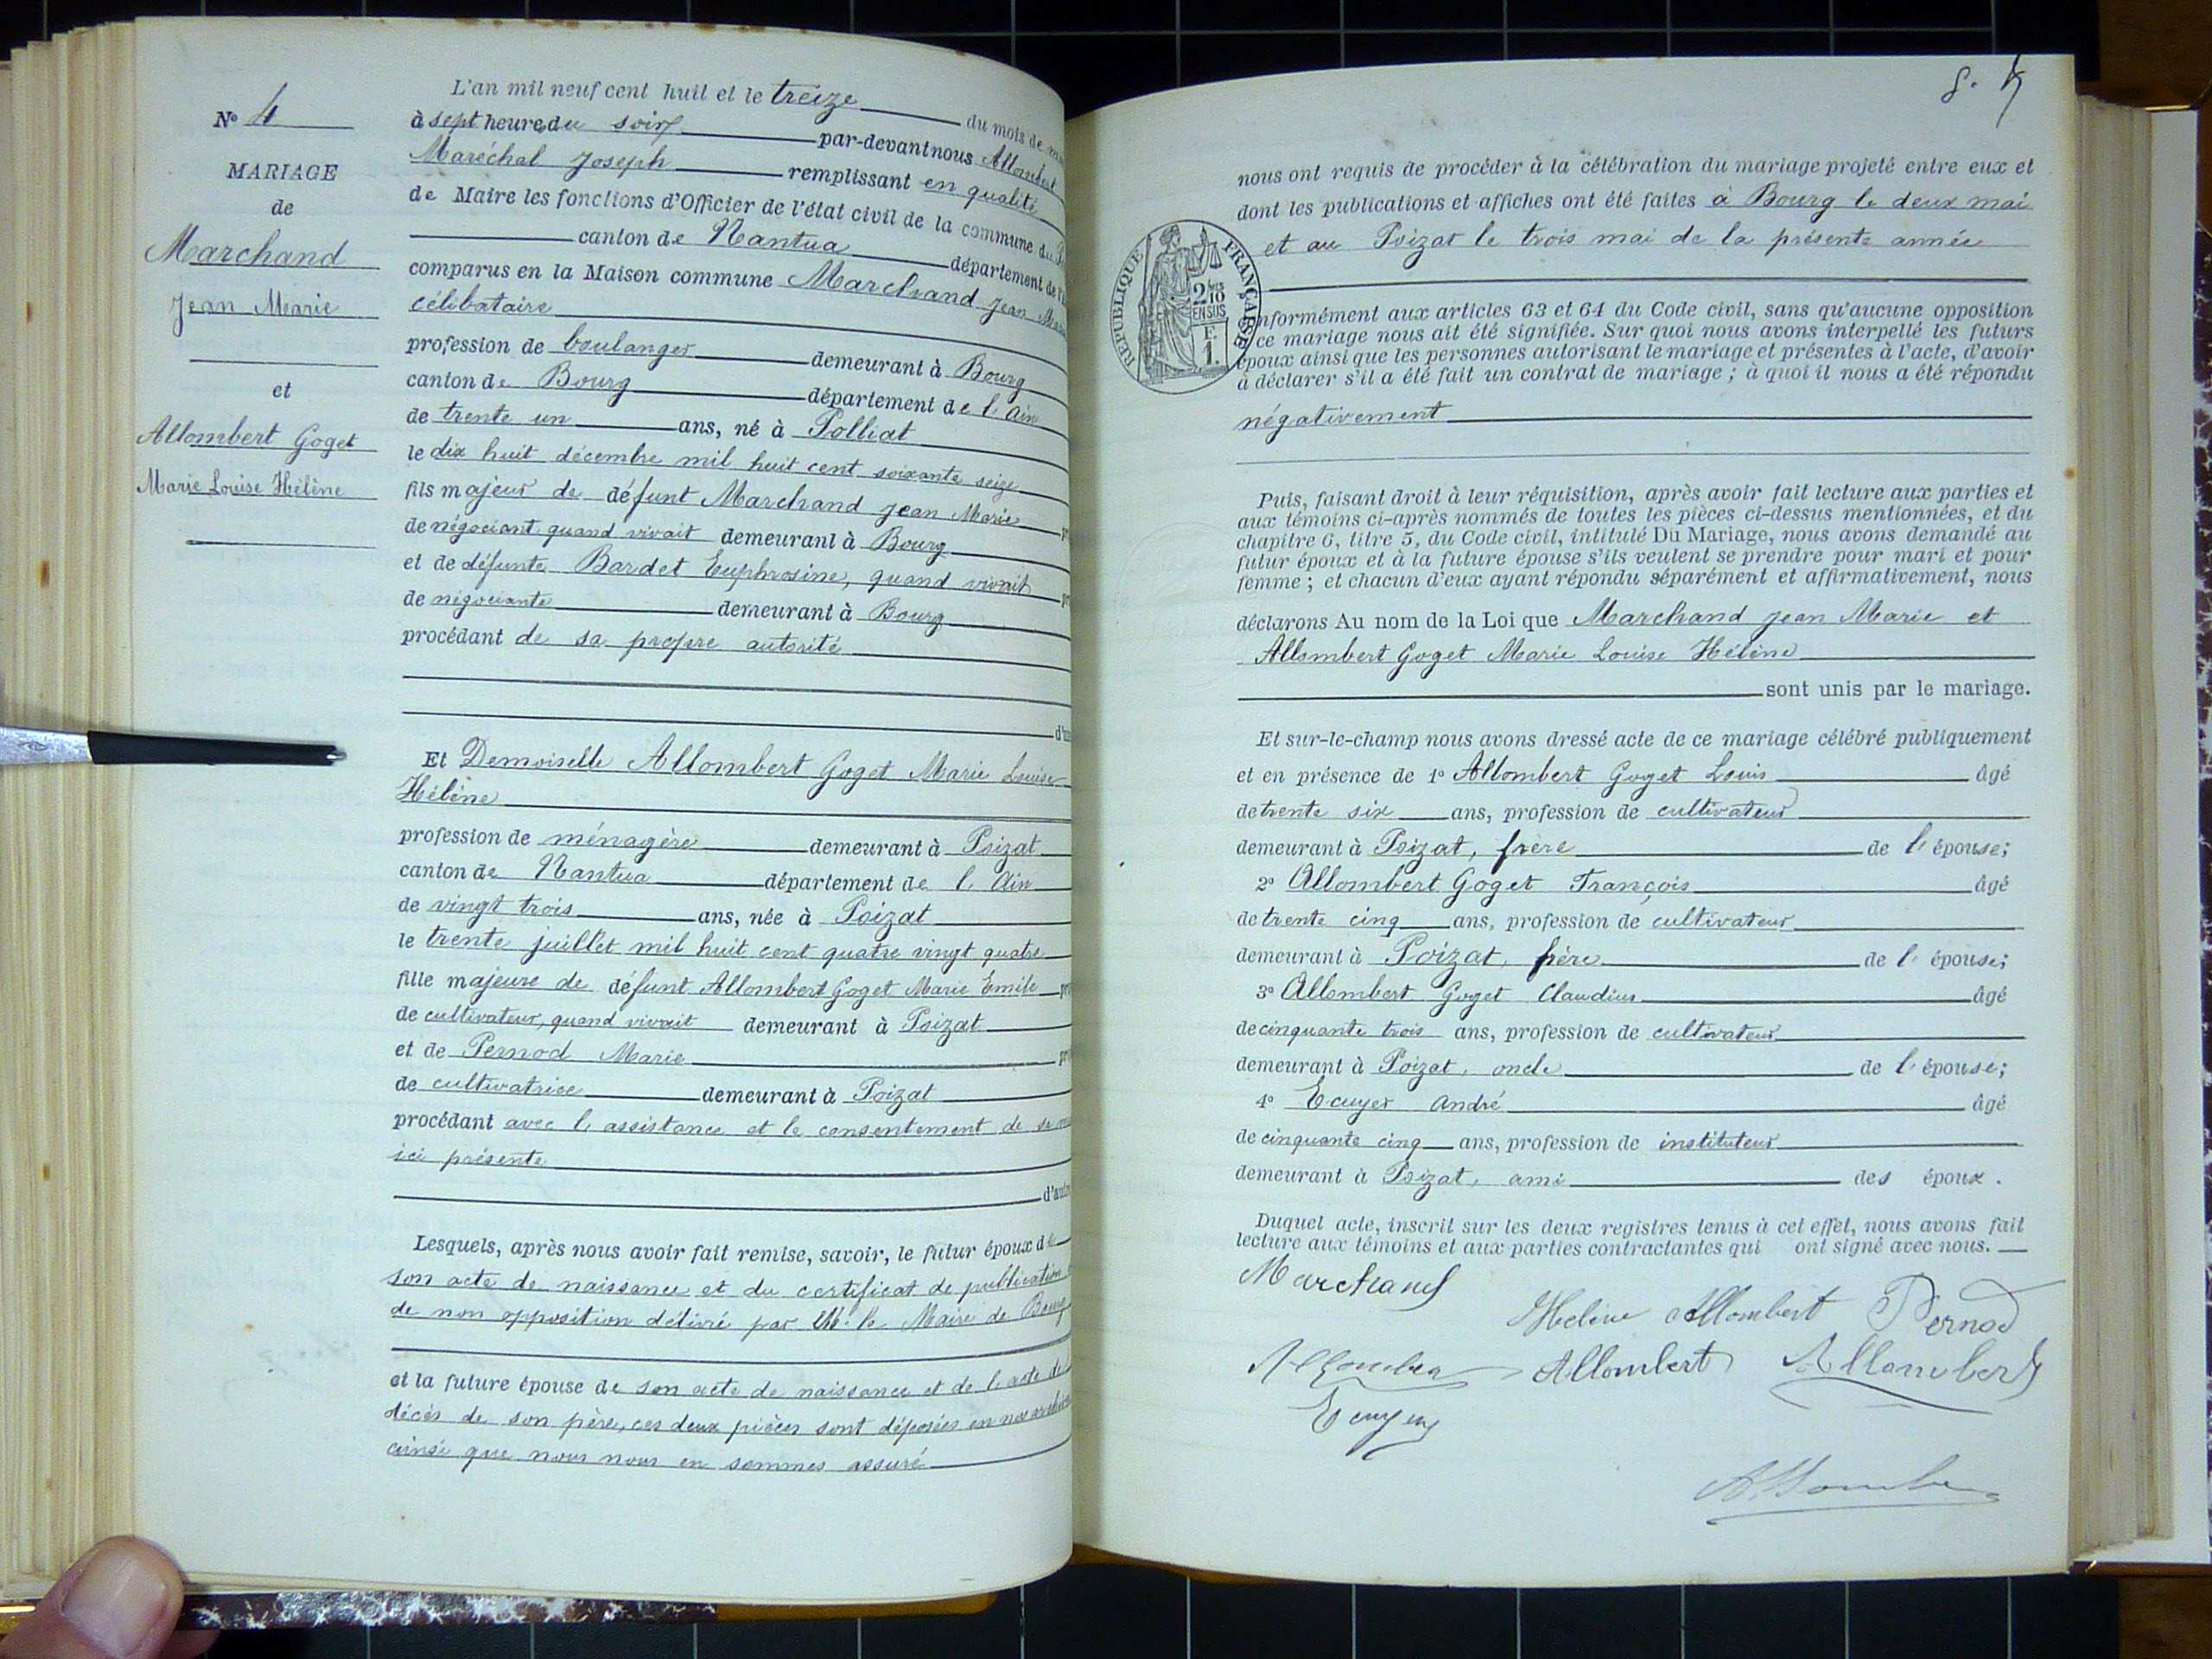 N° 4
MARIAGE
de
Marchand
Jean Marie
et
Allombert Goget
Marie Louise Hélène
L'an mil neuf cent huit et le treize du mois de
à sept heures du soir par-devant nous Allombert
Maréchal Joseph remplissant en qualité
de Maire les fonctions d'Officier de l'état civil de la commune du
canton de Nantua département de
comparus en la Maison commune Marchand Jean Marie
célibataire
profession de boulanger demeurant à Bourg
canton de Bourg département de l'Ain
de trente un ans, né à Polliat
le dix huit décembre mil huit cent soixante seize
fils majeur de défunt Marchand Jean Marie
de négociant quand vivait demeurant à Bourg
et de défunte Bardet Euphrosine, quand vivait
de négociante demeurant à Bourg
procédant de sa propre autorité
Et Demoiselle Allombert Goget Marie Louise
Hélène
profession de ménagère demeurant à Poizat
canton de Nantua département de l'Ain
de vingt trois ans, née à Poizat
le trente juillet mil huit cent quatre vingt quatre
fille majeure de défunt Allombert Goget Marie Emile
de cultivateur, quand vivait demeurant à Poizat
et de Pernod Marie
de cultivatrice demeurant à Poizat
procédant avec l'assistance et le consentement de sa
ici présente
Lesquels, après nous avoir fait remise, savoir, le futur époux de
son acte de naissance et du certificat de publication
de non opposition délivré par M. le Maire de Bourg
et la future épouse de son acte de naissance et de l'acte de
décès de son père, ces deux pièces sont déposées en nos archives
ainsi que nous nous en sommes assuré
nous ont requis de procéder à la célébration du mariage projeté entre eux et
dont les publications et affiches ont été faites à Bourg le deux mai
et au Poizat le trois mai de la présente année
RÉPUBLIQUE FRANÇAISE
2/10
EN SUS
F.
1.
nformément aux articles 63 et 64 du Code civil, sans qu'aucune opposition
ce mariage nous ait été signifiée. Sur quoi nous avons interpellé les futurs
époux ainsi que les personnes autorisant le mariage et présentes à l'acte, d'avoir
à déclarer s'il a été fait un contrat de mariage ; à quoi il nous a été répondu
négativement
Puis, faisant droit à leur réquisition, après avoir fait lecture aux parties et
aux témoins ci-après nommés de toutes les pièces ci-dessus mentionnées, et du
chapitre 6, titre 5, du Code civil, intitulé Du Mariage, nous avons demandé au
futur époux et à la future épouse s'ils veulent se prendre pour mari et pour
femme ; et chacun d'eux ayant répondu séparément et affirmativement, nous
déclarons Au nom de la Loi que Marchand Jean Marie et
Allombert Goget Marie Louise Hélène
sont unis par le mariage.
Et sur-le-champ nous avons dressé acte de ce mariage célébré publiquement
et en présence de 1° Allombert Goget Louis âgé
de trente six ans, profession de cultivateur
demeurant à Poizat, frère de l'épouse;
2° Allombert Goget François âgé
de trente cinq ans, profession de cultivateur
demeurant à Poizat, frère de l'épouse;
3° Allombert Goget Claudius âgé
de cinquante trois ans, profession de cultivateur
demeurant à Poizat, oncle de l'épouse;
4° Ecuyer André âgé
de cinquante cinq ans, profession de instituteur
demeurant à Poizat, ami des époux.
Duquel acte, inscrit sur les deux registres tenus à cet effet, nous avons fait
lecture aux témoins et aux parties contractantes qui ont signé avec nous.
Marchand
Hélène Allombert Pernod
Allombert Allombert